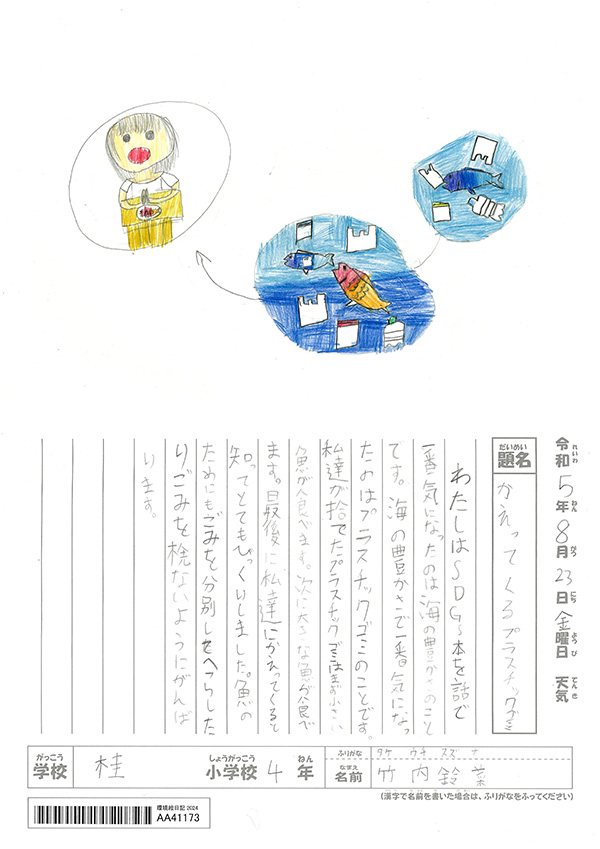 令和5年8月23日金曜日 天気
れいわ ねん がつ にち ようび てんき
だいめい
題名
かえってくるプラスチックゴミ
わたしはSDGs本を話で
一番気になったのは海の豊かさのこと
です。海の豊かさで一番気になっ
たのはプラスチックゴミのことです。
私達が捨てたプラスチックゴミはまず小さい
魚が食べます。次に大きな魚が食べ
ます。最後に私達にかえってくると
知ってとてもびっくりしました。魚の
ためにもごみを分別しをへらした
りごみを捨ないようにがんば
います。
がっこう
学校
桂
しょうがっこう
小学校
4
ねん
年
ふりがな
タケ ウチ スズ ナ
なまえ
名前
竹内鈴菜
(漢字で名前を書いた場合は、ふりがなをふってください)
環境絵日記2024
AA41173